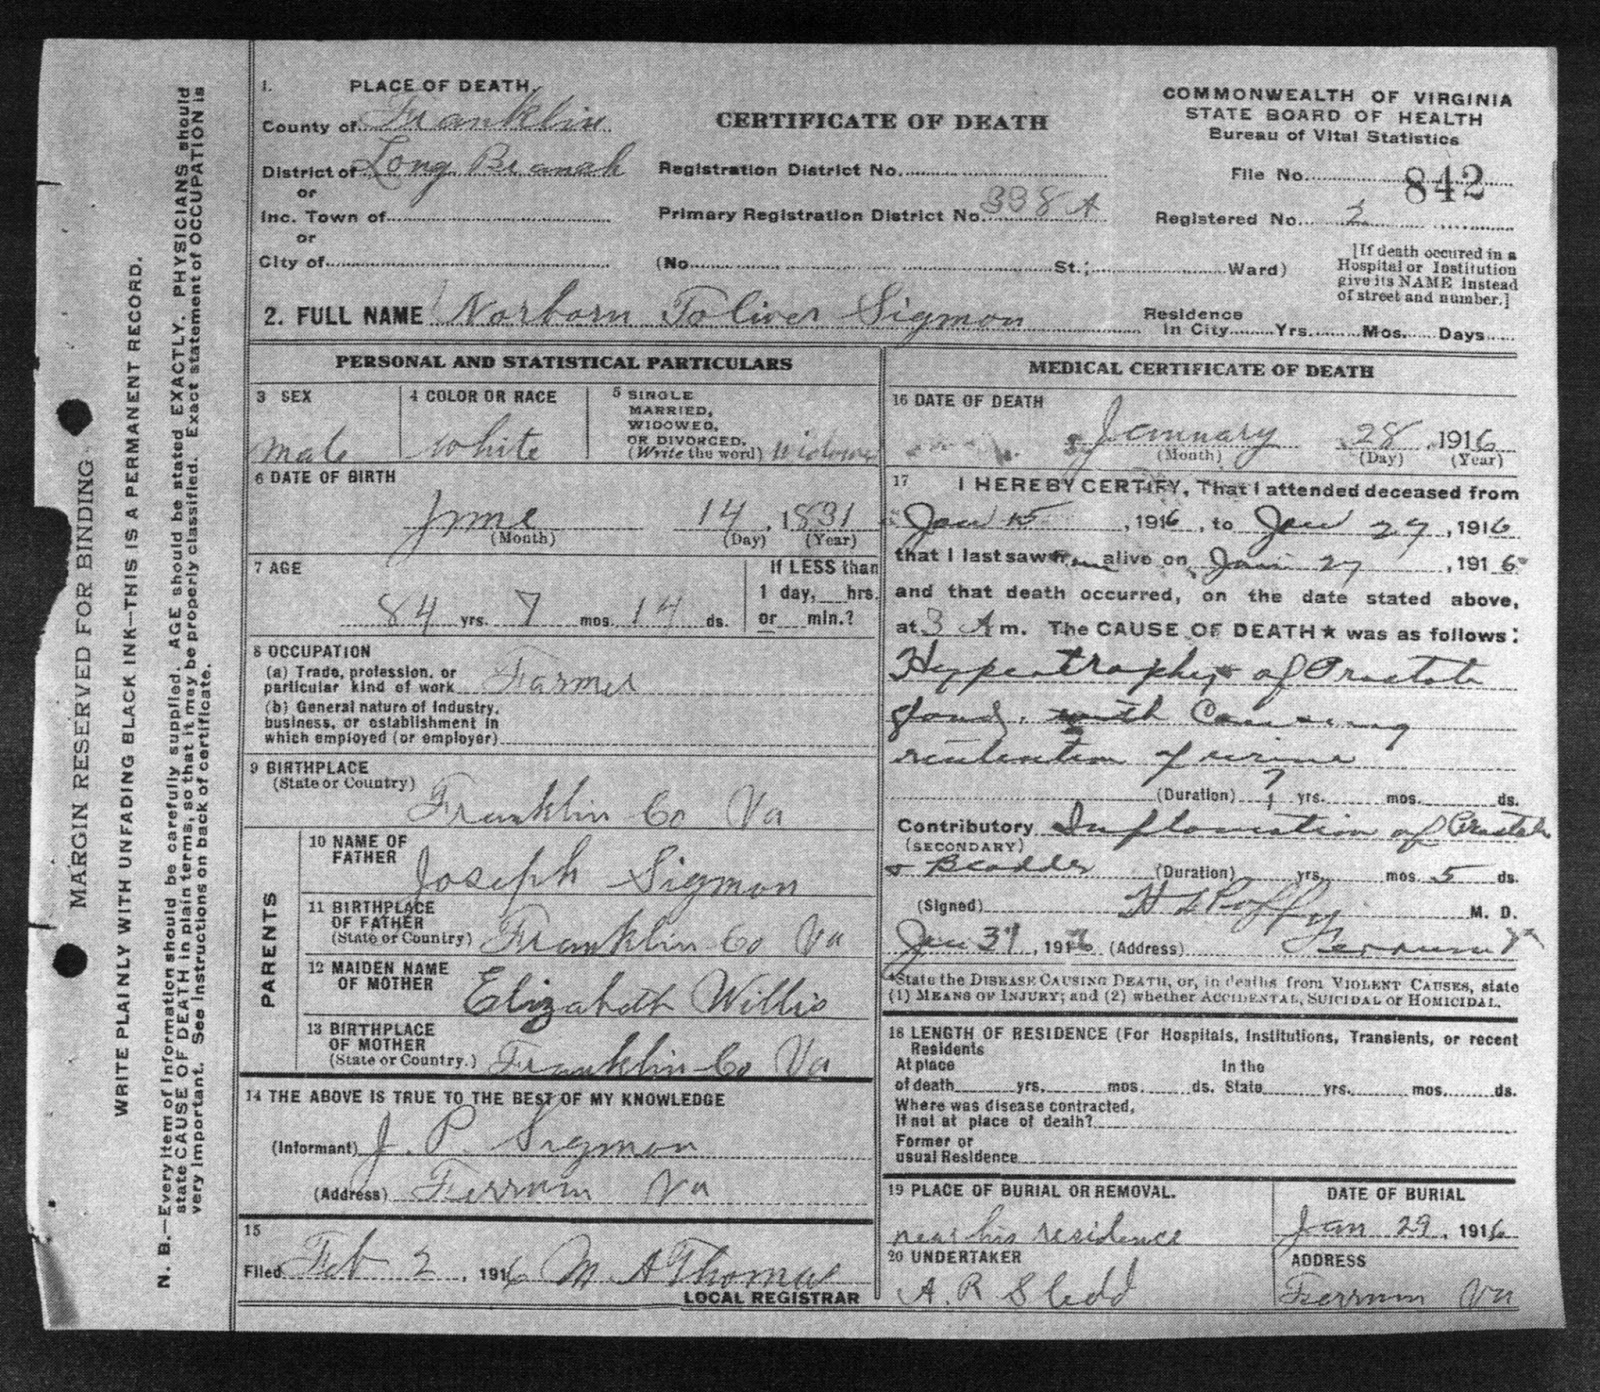 MARGIN RESERVED FOR BINDING
WRITE PLAINLY WITH UNFADING BLACK INK—THIS IS A PERMANENT RECORD.
N. B.—Every item of information should be carefully supplied. AGE should be stated EXACTLY. PHYSICIANS should
state CAUSE OF DEATH in plain terms, so that it may be properly classified. Exact statement of OCCUPATION is
very important. See instructions on back of certificate.
1. PLACE OF DEATH
County of Franklin
District of Long Branch
or
Inc. Town of
or
City of
CERTIFICATE OF DEATH
Registration District No.
Primary Registration District No. 338 A
(No. St.; Ward)
COMMONWEALTH OF VIRGINIA
STATE BOARD OF HEALTH
Bureau of Vital Statistics
File No. 842
Registered No. 2
[If death occured in a
Hospital or Institution
give its NAME instead
of street and number.]
2. FULL NAME Norborn Toliver Sigmon
Residence
in City Yrs. Mos. Days
PERSONAL AND STATISTICAL PARTICULARS
3 SEX
male
4 COLOR OR RACE
white
5 SINGLE
MARRIED,
WIDOWED,
OR DIVORCED.
(Write the word) Widower
6 DATE OF BIRTH
June 14, 1831
(Month) (Day) (Year)
7 AGE
84 yrs. 7 mos. 14 ds.
If LESS than
1 day, hrs.
or min.?
8 OCCUPATION
(a) Trade, profession, or
particular kind of work Farmer
(b) General nature of Industry,
business, or establishment in
which employed (or employer)
9 BIRTHPLACE
(State or Country)
Franklin Co Va
PARENTS
10 NAME OF
FATHER
Joseph Sigmon
11 BIRTHPLACE
OF FATHER
(State or Country) Franklin Co Va
12 MAIDEN NAME
OF MOTHER
Elizabeth Willis
13 BIRTHPLACE
OF MOTHER
(State or Country.) Franklin Co Va
14 THE ABOVE IS TRUE TO THE BEST OF MY KNOWLEDGE
(Informant) J. P. Sigmon
(Address) Ferrum Va
15
Filed Feb 2, 1916 M A Thomas
LOCAL REGISTRAR
MEDICAL CERTIFICATE OF DEATH
16 DATE OF DEATH
January 28 1916
(Month) (Day) (Year)
17 I HEREBY CERTIFY, That I attended deceased from
Jan 15, 1916, to Jan 27, 1916
that I last saw him alive on Jan 27, 1916
and that death occurred, on the date stated above,
at 3 A m. The CAUSE OF DEATH★ was as follows:
Hypertrophy of Prostate
gland. with Causing
retention of urine
(Duration) yrs. mos. ds.
Contributory Inflamation of Prostate
(SECONDARY)
& Bladder (Duration) yrs. mos. 5 ds.
(Signed) M. D.
Jan 31, 1916 (Address) Ferrum Va
*State the DISEASE CAUSING DEATH, or, in deaths from VIOLENT CAUSES, state
(1) MEANS OF INJURY; and (2) whether ACCIDENTAL, SUICIDAL or HOMICIDAL.
18 LENGTH OF RESIDENCE (For Hospitals, Institutions, Transients, or recent
Residents
At place In the
of death yrs. mos. ds. State yrs. mos. ds.
Where was disease contracted,
If not at place of death?
Former or
usual Residence
19 PLACE OF BURIAL OR REMOVAL.
near his residence
DATE OF BURIAL
Jan 29, 1916
20 UNDERTAKER
A. R Sledd
ADDRESS
Ferrum Va